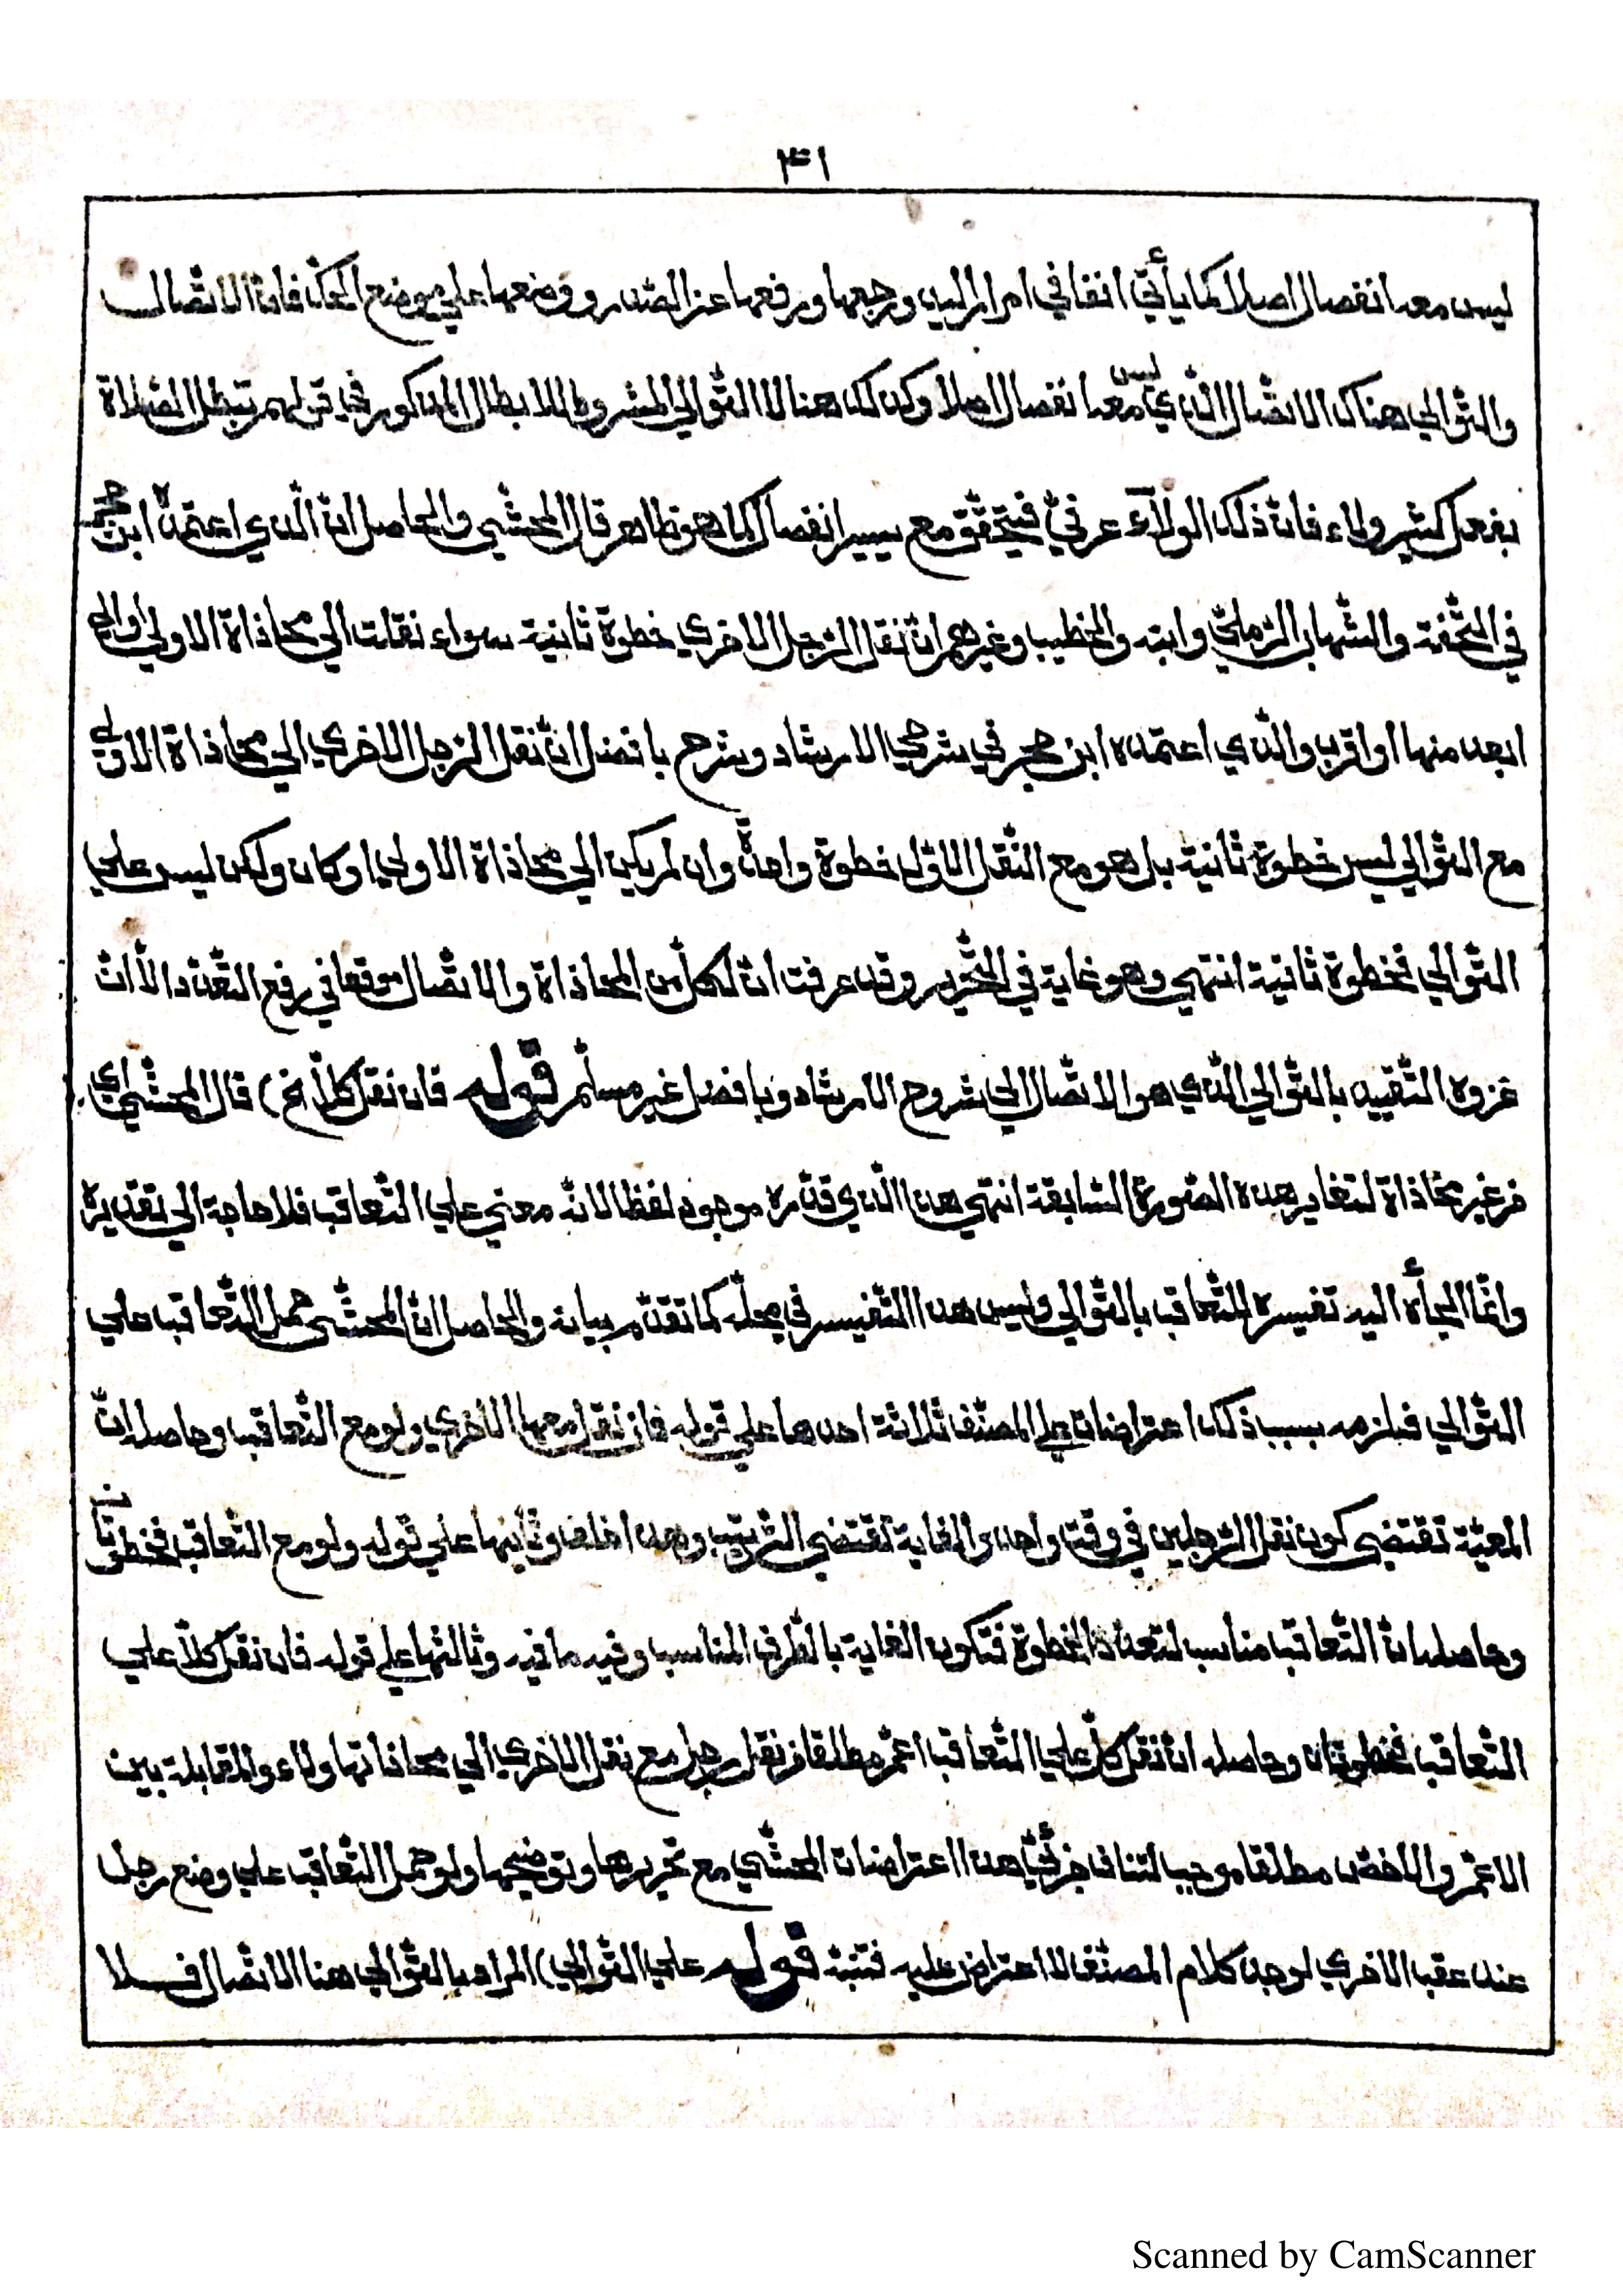 ٣١
ليس معه انفصال اصلا كما يأتي انفا في امرار اليد ورجعها ورفعها عن الصدر ووضعها علي موضع الحكّ فانّ الاتّصال
والتّوالي هناك الاتّصال الّذي ليس معه انفصال اصلا وكذلك هنا لا التّوالي المشروط للابطال المذكور في قولهم تبطل الصّلاة
بفعل كثير ولاء فانّ ذلك الولآء عرفيّ فيتحقّق مع يسير انفصال كما هو ظاهر قال المحشّي والحاصل انّ الّذي اعتمده ابن حجر
في التّحفة والشّهاب الرّمليّ وابنه والخطيب وغيرهم انّ نقل الرّجل الاخري خطوة ثانية سواء نقلت الي محاذاة الاولي او الي
ابعد منها او اقرب والّذي اعتمده ابن حجر في شرحي الارشاد وشرح بافضل انّ نقل الرّجل الاخري الي محاذاة الاولي
مع التّوالي ليس خطوة ثانية بل هو مع النّقل الاوّل خطوة واحدة وان لم يكن الي محاذاة الاولي او كان ولكن ليس علي
التّوالي فخطوة ثانية انتهي وهو غاية في التّحرير وقد عرفت انّ لكلّ من المحاذاة والاتّصال موقعا في رفع التّعدّد الّا انّ
عزوه التّقييد بالتّوالي الّذي هو الاتّصال الي شروح الارشاد وبافضل غير مسلّم قوله فان نقل كلّا الخ) قال المحشّي اي
من غير محاذاة لتغاير هذه الصّورة السّابقة انتهي هذا الّذي قدّره موجود لفظا لانّه معني علي التّعاقب فلا حاجة الي تقديره
وانّما الجأه اليه تفسيره للتّعاقب بالتّوالي وليس هذا التّفسير في محلّه كما تقدّم بيانه والحاصل انّ المحشّي حمل التّعاقب علي
التّوالي فيلزمه بسبب ذلك اعتراضات علي المصنّف ثلاثة احدها علي قوله فان نقل معها الاخري ولو مع التّعاقب وحاصله انّ
المعيّة تقتضي كون نقل الرّجلين في وقت واحد والغاية تقتضي التّرتيب وهذا خلف وثانيها علي قوله ولو مع التّعاقب فخطوتان
وحاصله انّ التّعاقب مناسب لتعدّد الخطوة فتكون الغاية بالطّرف المناسب وفيه ما فيه وثالثها علي قوله فان نقل كلّا علي
التّعاقب فخطوتان وحاصله انّ نقل كلّ علي التّعاقب اعمّ مطلقا من نقل رجل مع نقل الاخري الي محاذاتها ولاء والمقابلة بين
الاعمّ والاخصّ مطلقا موجب لتناف جزئيّ هذا اعتراضات المحشّي مع تحريرها وتوضيحها ولو حمل التّعاقب علي وضع رجل
عند عقب الاخري لوجد كلام المصنّف لا اعتراض عليه فتنبّه قوله علي التّوالي) المراد بالتّوالي هنا الاتّصال فلا
Scanned by CamScanner